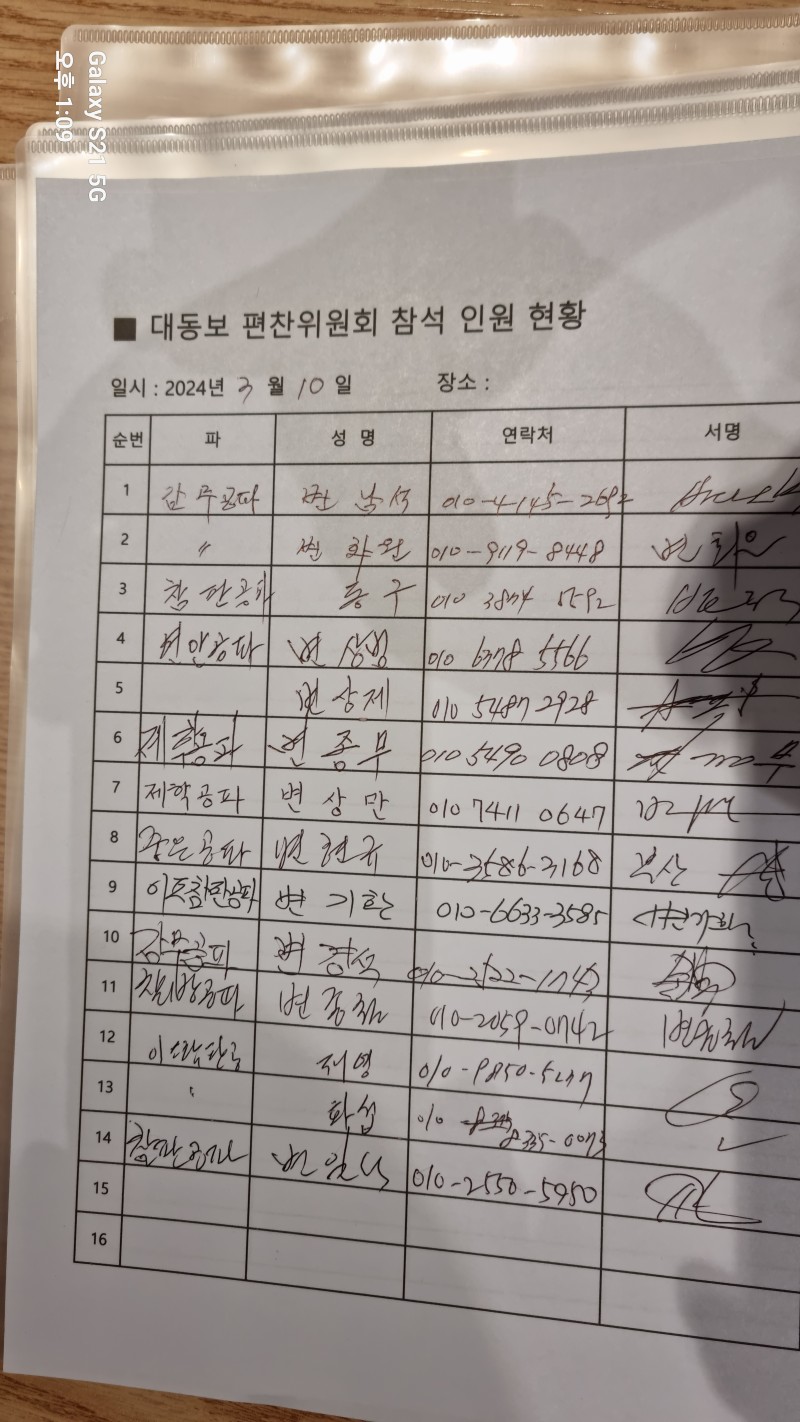 Galaxy S21 5G
오후 1:09
■ 대동보 편찬위원회 참석 인원 현황
일시 : 2024년 3 월 10 일 장소 :
순번 파 성 명 연락처 서명
1 감무공파 변 남석 010-4145-2692
2 〃 변 화완 010-9119-8448
3 참판공파 동구 010 3874 5592
4 변상범 010 6378 5566
5 변상제 010 5487 2928
6 제학공파 변종무 010 5490 0808
7 제학공파 변상만 010 7411 0647
8 변현규 010-3586-3168 부산
9 이토참판공파 변기환 010-6633-3585 변기환
10 감무공파 변강석
11 변종 010-2059-0742
12 재영 010-9850-
13 화섭 010 8335-0073
14 참판공파 변 010-2550-5950
15
16